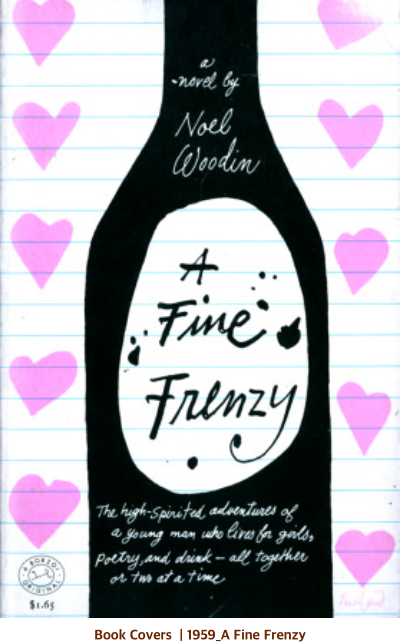 a
novel by
Noel
Woodin
A
Fine
Frenzy
The high-spirited adventures of
a young man who lives for girls,
poetry, and drink – all together
or two at a time
A BORZOI
ORIGINAL
$1.65
Book Covers | 1959_A Fine Frenzy